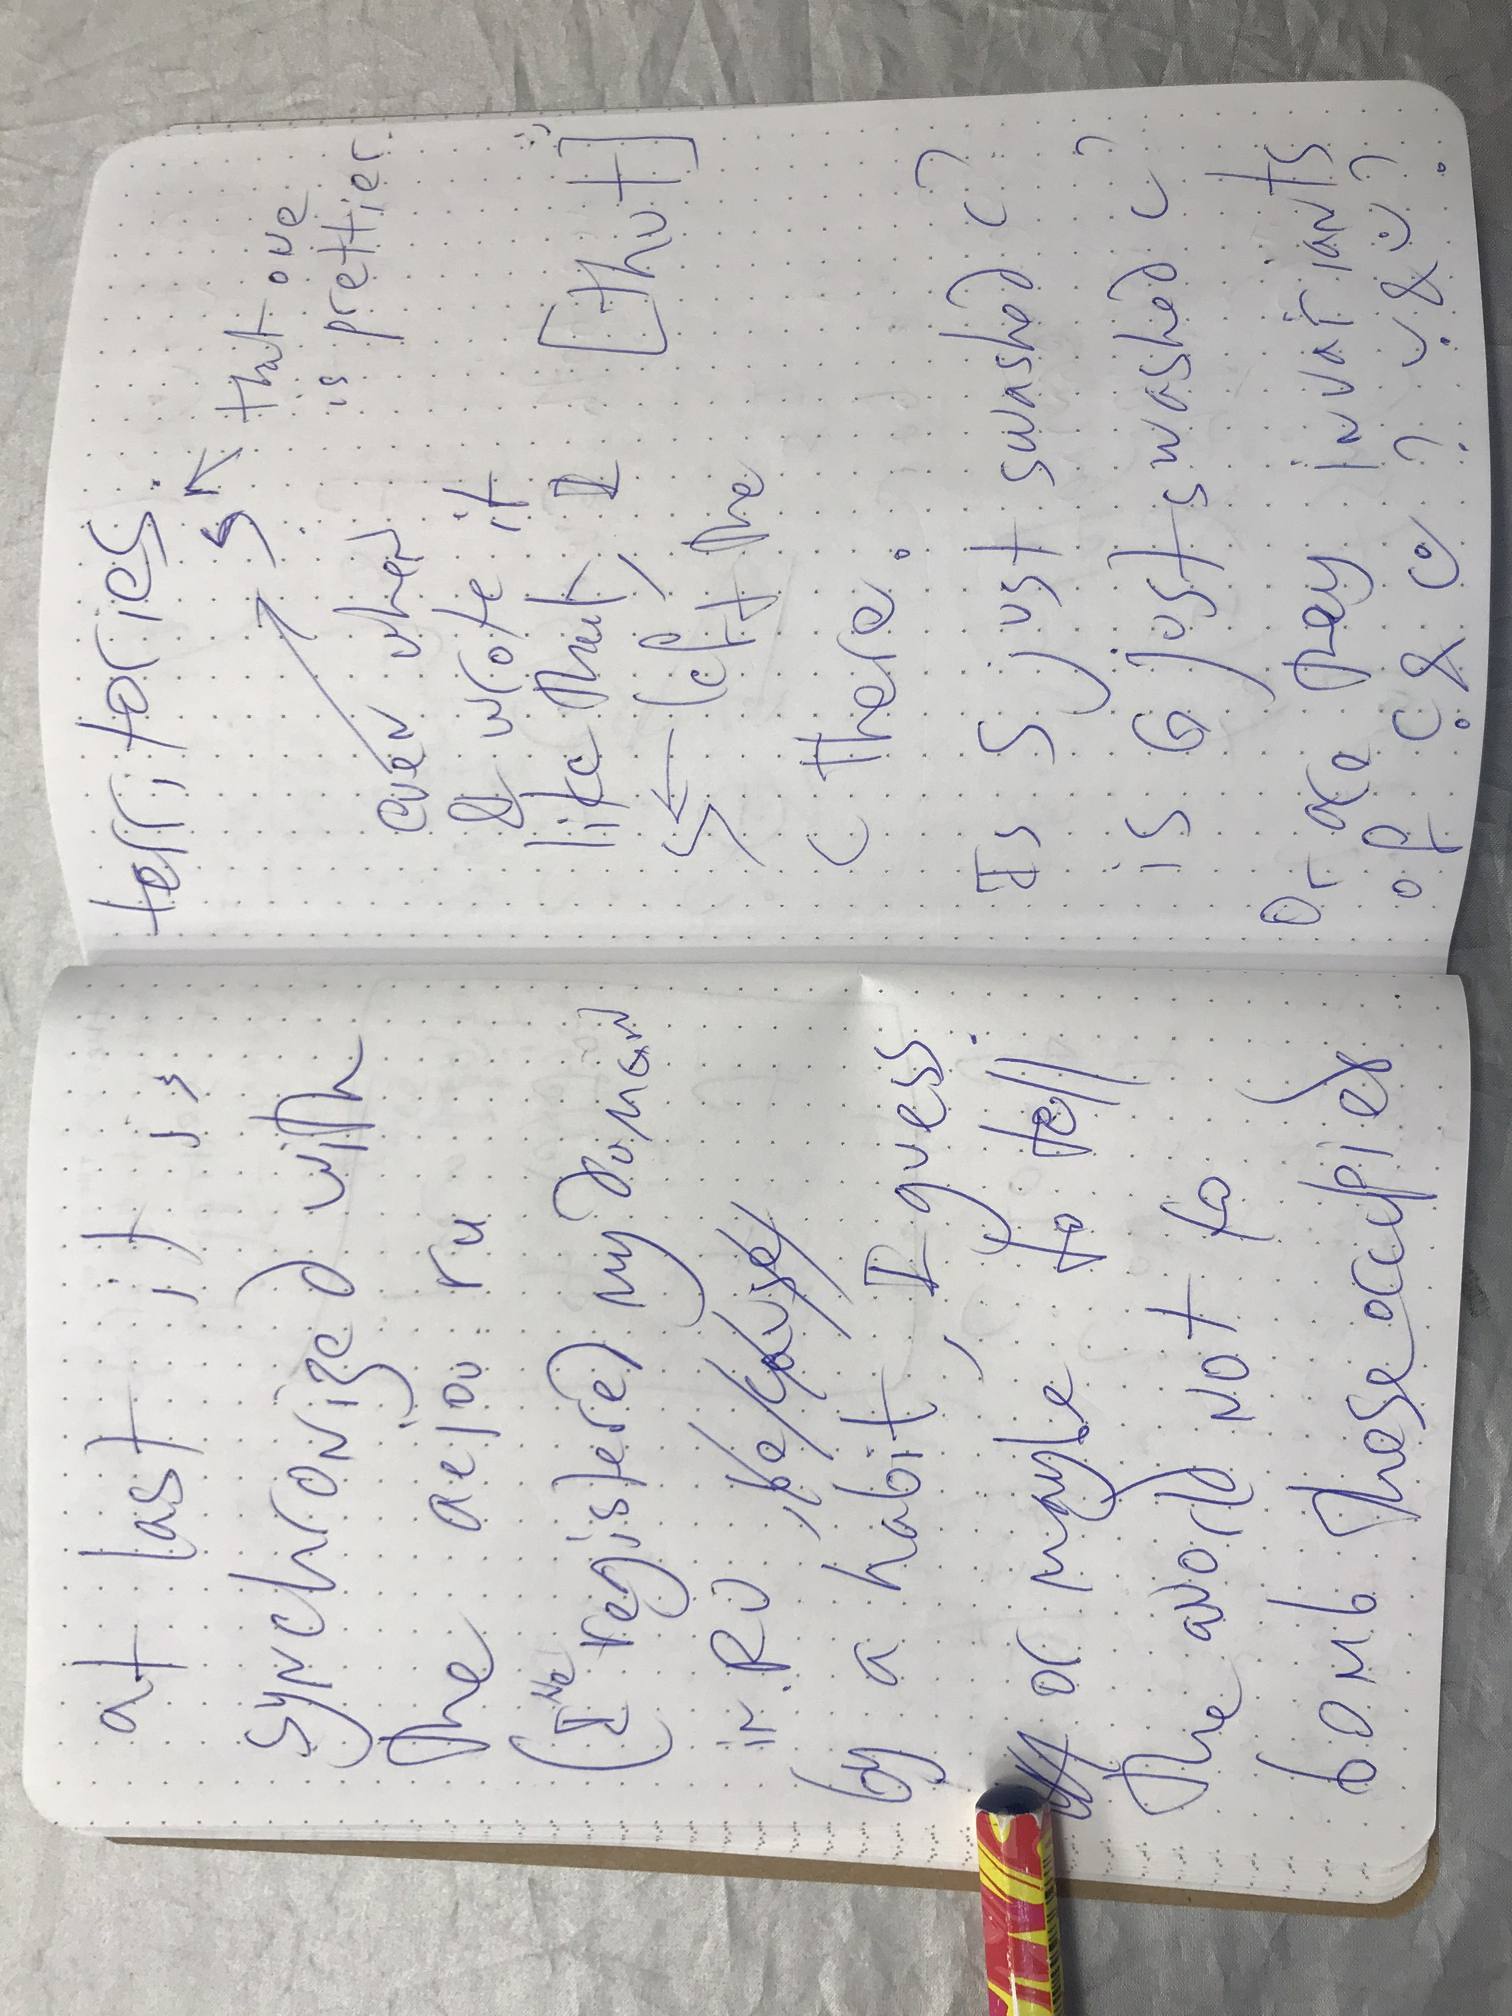 at last it is
synchronized with
the aejou.ru
(I've registered my domen
in RU, /be/cause/
by a habit, I guess.
or maybe to tell
the world not to
bomb these occupied
territories.
that one
is prettier
even when
I wrote it
like that, I [thut]
left the
c there.
Is S just swashed c?
is G just swashed c?
Or are they invariants
of